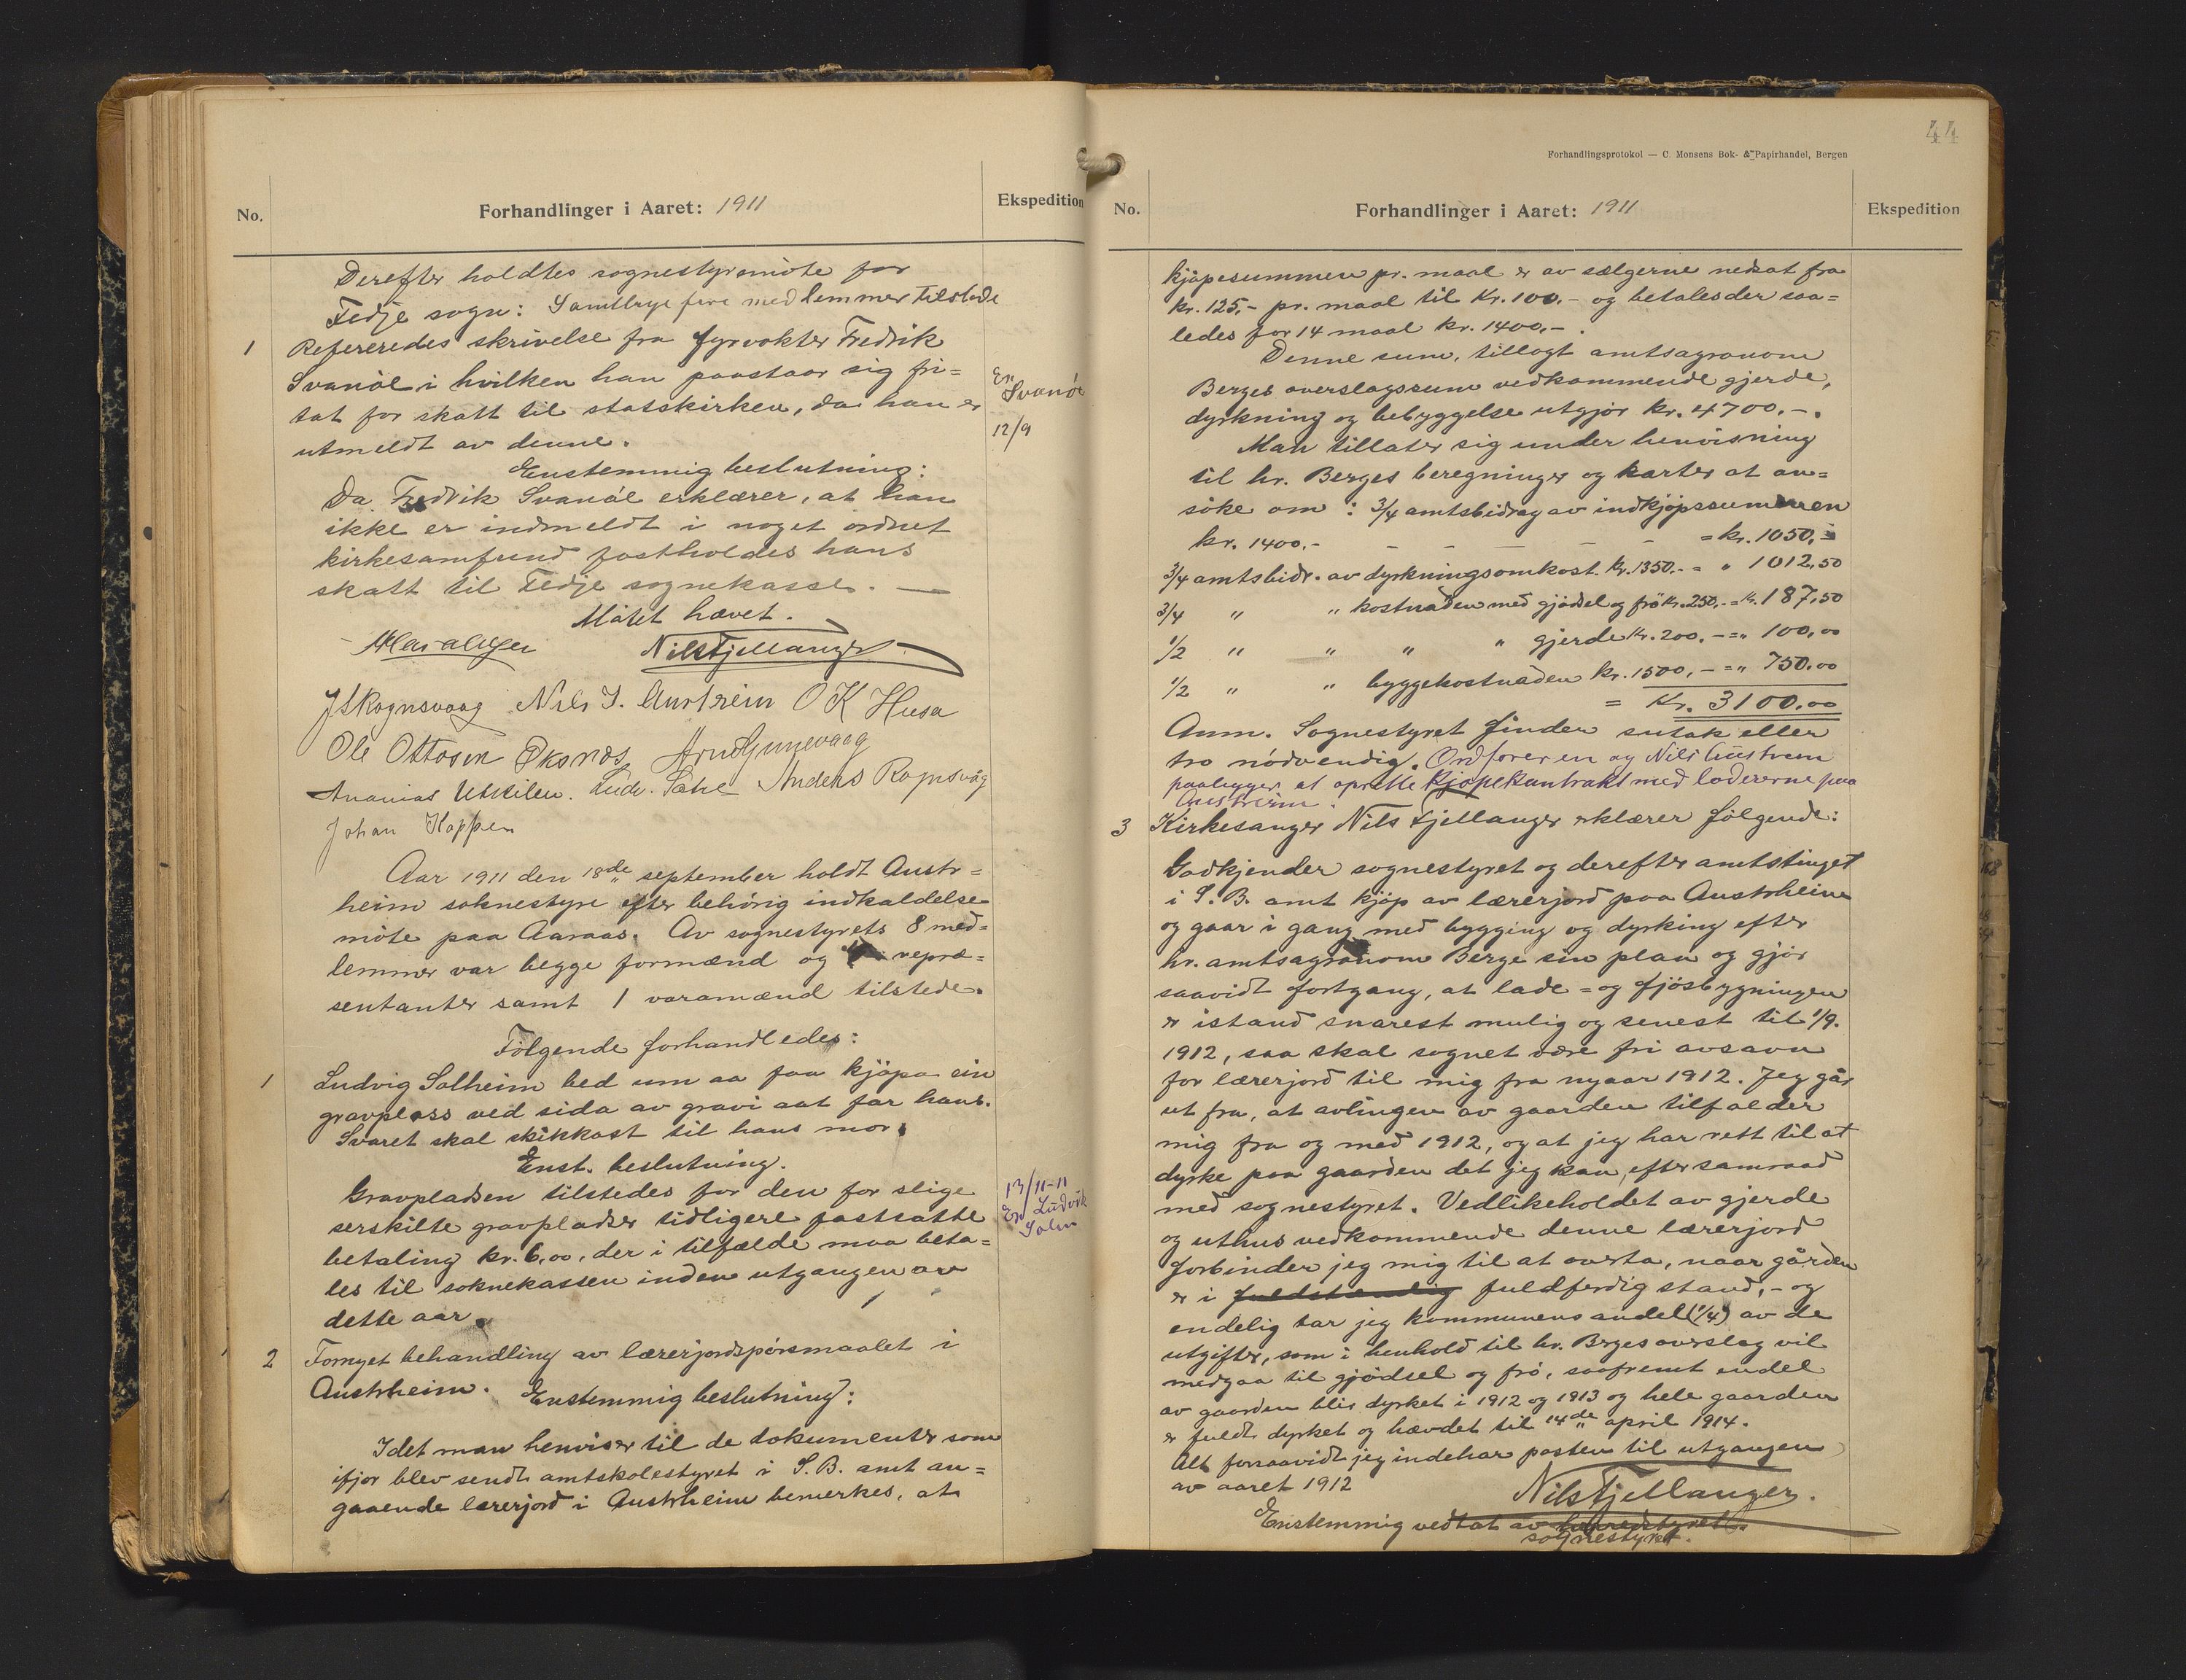 No.
Forhandlinger i Aaret: 1911
Ekspedition
Derefter holdtes sognestyremöte for
Fedje sogn: Samtlige fire medlemmer tilstede
1 Refereredes skrivelse fra fyrvokter Fredrik
Svanöe i hvilken han paastaar sig fri=
tat for skatt til statskirken, da han er
utmeldt av denne.
En Svanöe
12/9
Enstemmig beslutning:
Da Fredrik Svanöe erklærer, at han
ikke er indmeldt i noget ordnet
kirkesamfund fastholdes hans
skatt til Fedje sognekasse. —
Mötet hævet.
Nils Fjellanger
J Rognsvaag Nils J. Austreim O K Husa
Ole Ottosen Öksnes Arne Gunnevaag
Ananias Utkilen. Ludv. Sætre Anders Rognsvåg
Johan Koppen
Aar 1911 den 18de september holdt Austr=
heim soknestyre efter behörig indkaldelse
möte paa Aaraas. Av sognestyrets 8 med=
lemmer var begge formænd og repræ=
sentanter samt 1 varamænd tilstede.
Fölgende forhandledes:
1 Ludvig Solheim bed um aa faa kjöpa ein
gravplass ved sida av gravi aat far hans.
Svaret skal skikkast til hans mor.
Enst. beslutning.
Gravpladsen tilstedes for den for slige
serskilte gravpladser tidligere fastsatte
betaling kr. 6,00, der i tilfælde maa beta=
les til soknekassen inden utgangen av
dette aar.
13/11-11
En Ludvik
Solm
2 Fornyet behandling av lærerjordspörsmaalet i
Austrheim. Enstemmig beslutning:
Idet man henviser til de dokumenter som
ifjor blev sendt amtskolestyret i S. B. amt an=
gaaende lærerjord i Austrheim bemerkes, at
44
Forhandlingsprotokol — C. Monsens Bok- & Papirhandel, Bergen
No.
Forhandlinger i Aaret: 1911
Ekspedition
kjöpesummen pr. maal er av sælgerne nedsat fra
kr. 125,- pr. maal til Kr. 100.- og betales der saa=
ledes for 14 maal kr. 1400,-.
Denne sum, tillagt amtsagronom
Berges overslagssum vedkommende gjerde,
dyrkning og bebyggelse utgjör kr. 4700.-.
Man tillater sig under henvisning
til hr. Berges beregninger og karter at an=
söke om: 3/4 amtsbidrag av indkjöpssummen
kr. 1400.- - - - - - = kr. 1050,-
3/4 amtsbidr. av dyrkningsomkost. kr. 1350.- = " 1012,50
3/4 " " kostnaden med gjödsel og frö Kr. 250,- = Kr. 187,50
1/2 " " " " gjerde Kr. 200.- = " 100,00
1/2 " " byggekostnaden kr. 1500,- = " 750.00
= Kr. 3100.00
Anm. Sognestyret finder
nödvendig. Ordföreren og Nils Austreim
paalegges at oprette kjöpekontrakt med lodeierne paa
Austreim.
3 Kirkesanger Nils Fjellanger erklærer fölgende:
Godkjender sognestyret og derefter amtstinget
i S. B. amt kjöp av lærerjord paa Austrheim
og gaar i gang med bygging og dyrking efter
hr. amtsagronom Berge sin plan og gjör
saavidt fortgang, at lade- og fjösbygningen
er istand snarest mulig og senest til 1/9.
1912, saa skal sognet være fri avsavn
for lærerjord til mig fra nyaar 1912. Jeg går
ut fra, at avlingen av gaarden tilfalder
mig fra og med 1912, og at jeg har rett til at
dyrke paa gaarden det jeg kan, efter samraad
med sognestyret. Vedlikeholdet av gjerde
og uthus vedkommende denne lærerjord
forbinder jeg mig til at overta, naar gården
er i fuldstændig fuldferdig stand,- og
endelig tar jeg kommunens andel (1/4) av de
utgifter, som i henhold til hr. Berges overslag vil
medgaa til gjödsel og frö, saafremt endel
av gaarden blir dyrket i 1912 og 1913 og hele gaarden
er fuldt dyrket og hævdet til 14de april 1914.
Alt forsaavidt jeg indehar posten til utgangen
av aaret 1912
Nils Fjellanger.
Enstemmig vedtat av herredstyret.
sognestyret.